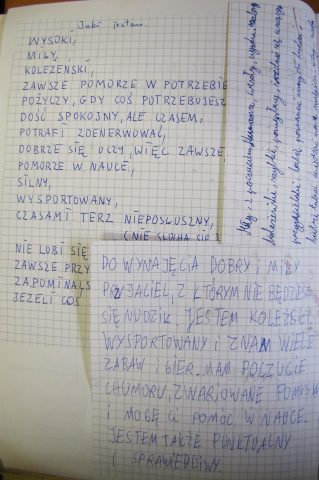 Jaki jestem.
WYSOKI,
MIŁY,
KOLEŻEŃSKI,
ZAWSZE POMORZE W POTRZEBIE
POŻYCZY, GDY COŚ POTRZEBUJESZ
DOŚĆ SPOKOJNY, ALE CZASEM,
POTRAFI ZDENERWOWAĆ,
DOBRZE SIĘ UCZY, WIĘC ZAWSZE
POMORZE W NAUCE,
SILNY,
WYSPORTOWANY,
CZASAMI TERZ NIEPOSŁUSZNY,
(NIE SŁUCHA SIĘ
NIE LUBI SIĘ
ZAWSZE PRZY
ZAPOMINALS
JEŻELI COŚ
DO WYNAJĘCIA DOBRY I MIŁY
PRZYJACIEL, Z KTÓRYM NIE BĘDZIESZ
SIĘ NUDZIŁ. JESTEM KOLEŻSKI,
WYSPORTOWANY I ZNAM WIELE
ZABAW I GIER. MAM POCZUCIE
CHUMORU, ZWARJOWANE POMYSŁY
I MOGĘ CI POMÓC W NAUCE.
JESTEM TAKŻE PUNKTUALNY
I SPRAWIEDLIWY.
Miły, z poczuciem humoru, wesoły, wysoki,
koleżeński,